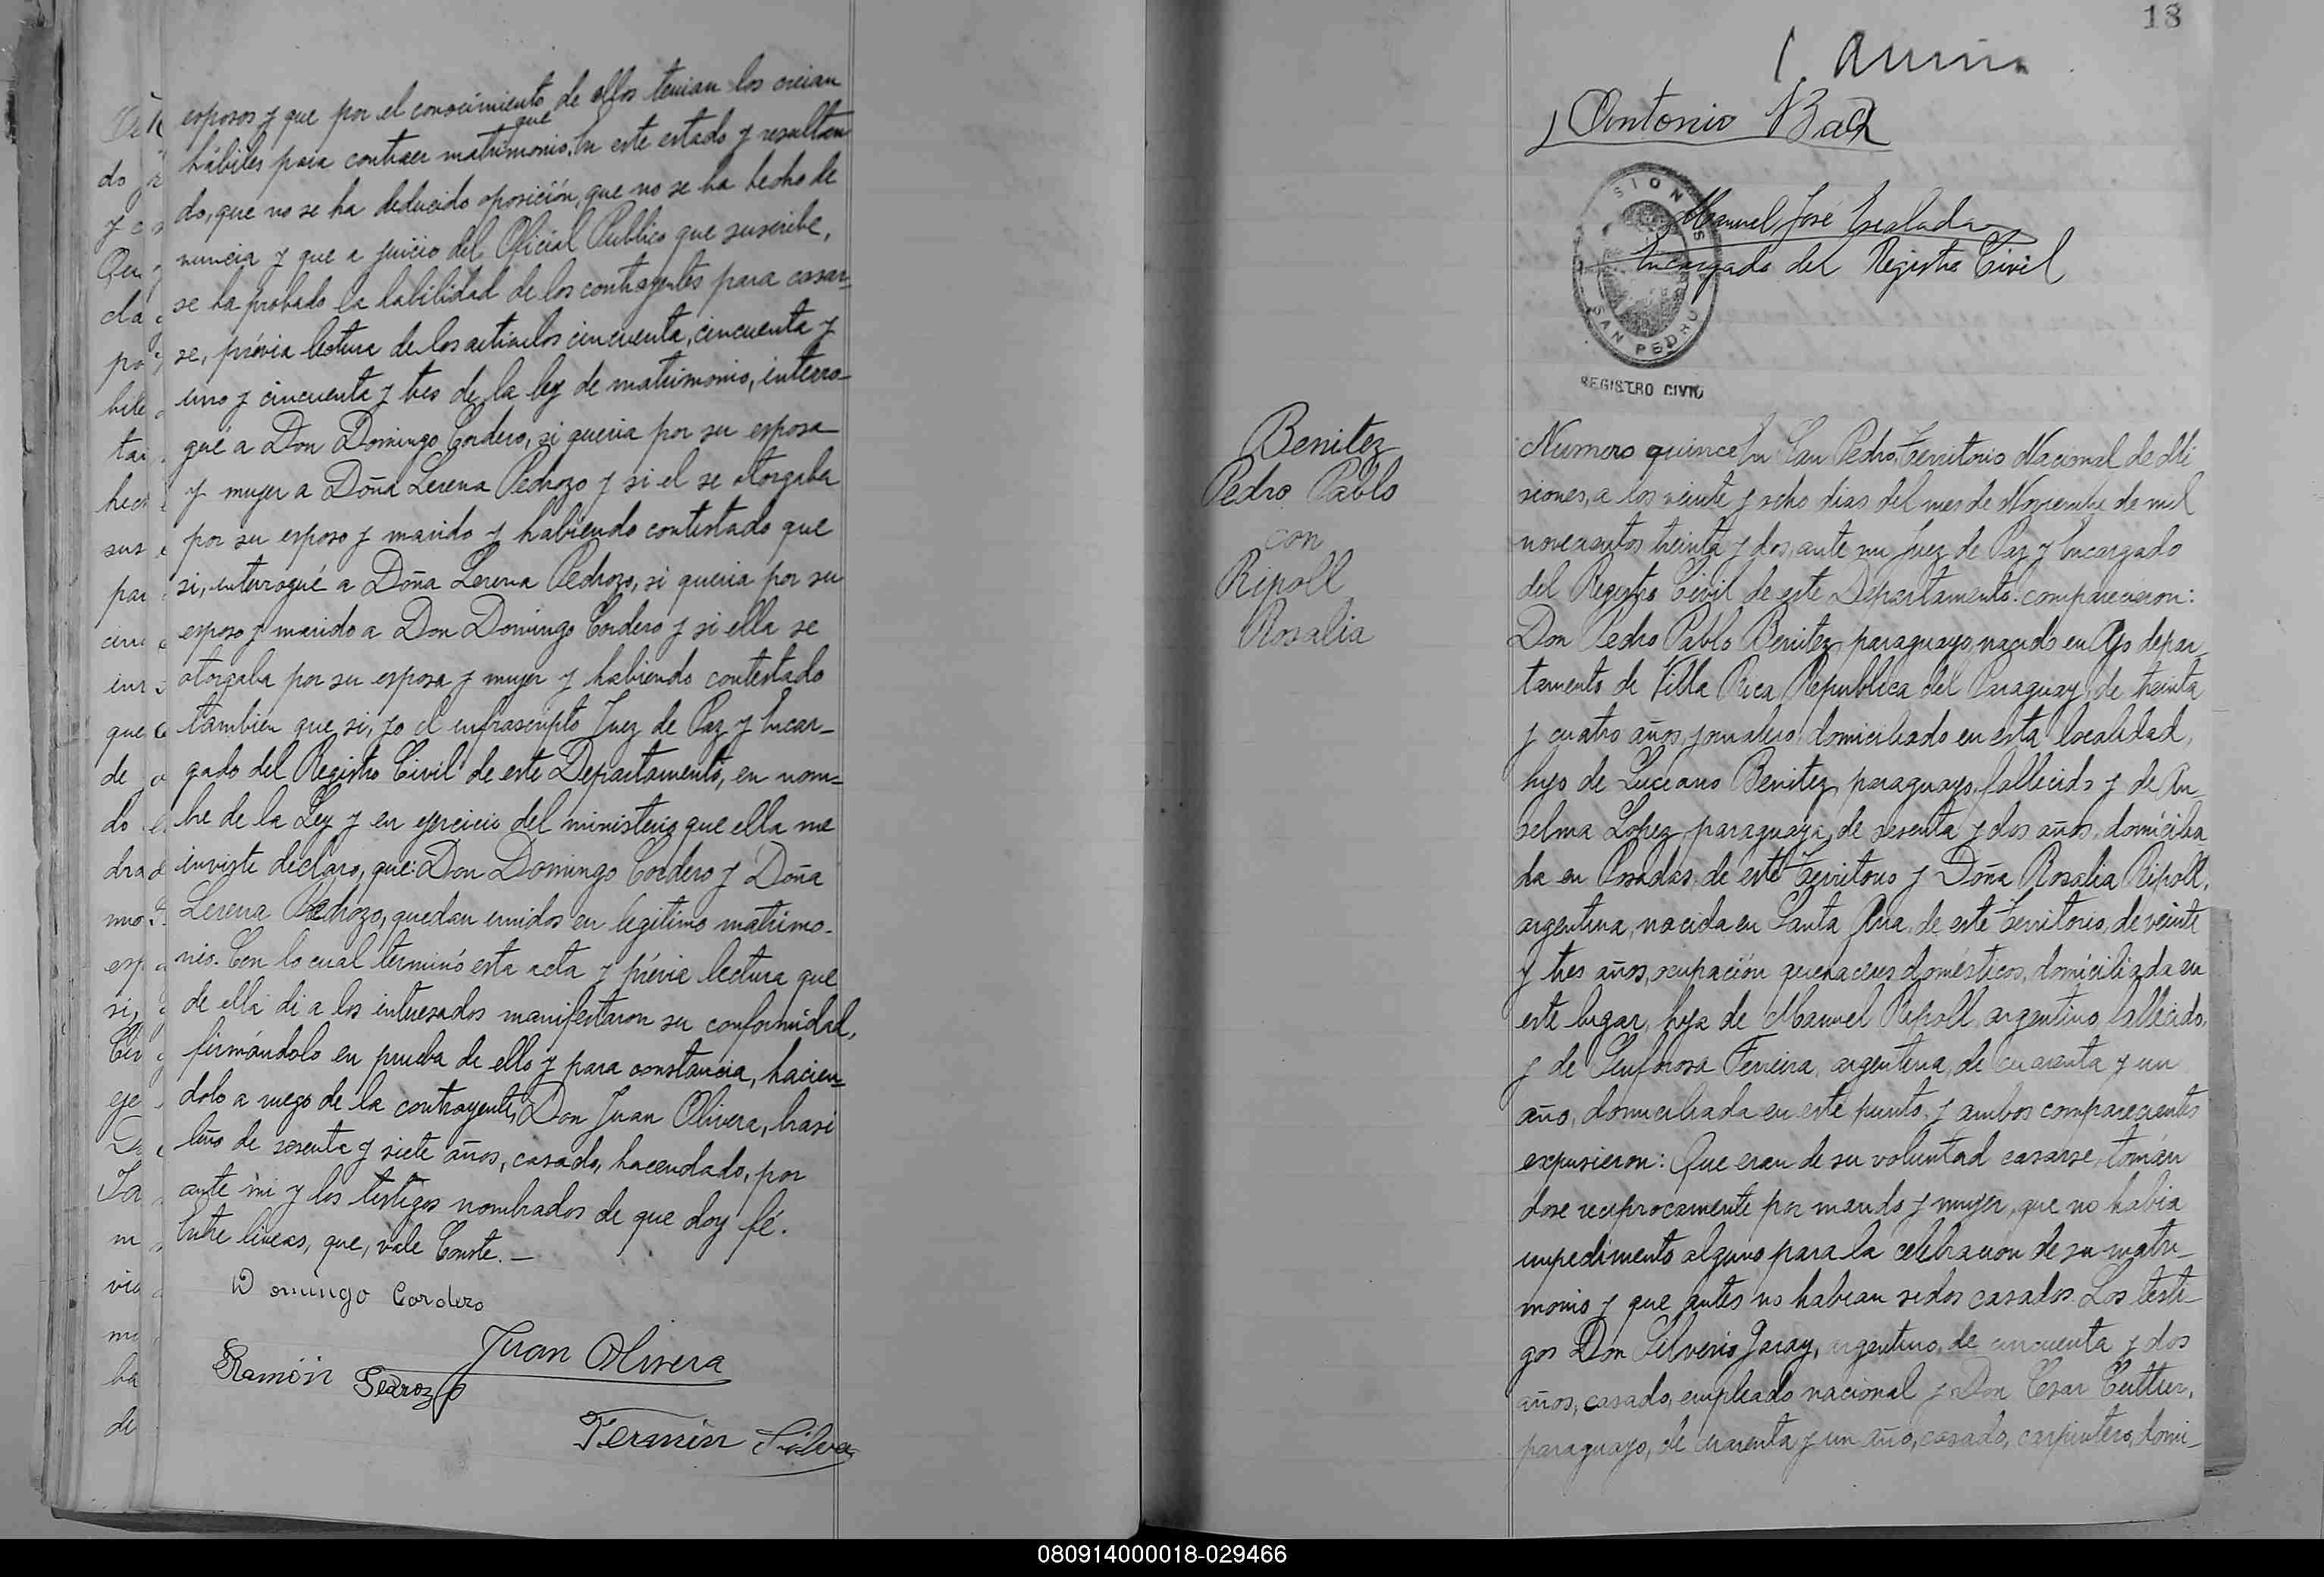 esposos y que por el conocimiento de ellos tenian los creian
que
hábiles para contraer matrimonio. En este estado y resultan
do, que no se ha deducido oposición, que no se ha hecho de
nuncia y que a juicio del Oficial Publico que suscribe,
se ha probado la habilidad de los contrayentes para casar-
se, prévia lectura de los articulos cincuenta, cincuenta y
uno y cincuenta y tres de la ley de matrimonio, interro-
gué a Don Domingo Cordero, si queria por su esposa
y muger a Doña Lerena Pedrozo y si el se otorgaba
por su esposo y marido y habiendo contestado que
si, interrogué a Doña Lerena Pedrozo, si queria por su
esposo y marido a Don Domingo Cordero y si ella se
otorgaba por su esposa y muger y habiendo contestado
tambien que si, yo el infrascripto Juez de Paz y Encar-
gado del Registro Civil de este Departamento, en nom-
bre de la Ley y en ejercicio del ministerio que ella me
inviste declaro, que: Don Domingo Cordero y Doña
Lerena Pedrozo, quedan unidos en legitimo matrimo-
nio. Con lo cual terminó esta acta y prévia lectura que
de ella di a los interesados manifestaron su conformidad,
firmándolo en prueba de ello y para constancia, hacien-
dolo a ruego de la contrayente, Don Juan Olivera, brasi
leño de sesenta y siete años, casado, hacendado, por
ante mi y los testigos nombrados de que doy fé.
Entre lineas, que, vale Conste.-
Domingo Cordero
Juan Olivera
Ramón Pedrozo
Fermin Silva
18
Antonio
Manuel José
Encargado del Registro Civil
SIONES
SAN PEDRO
REGISTRO CIVIL
Benitez
Pedro Pablo
con
Ripoll
Rosalia
Numero quince En San Pedro, Territorio Nacional de Mi
siones, a los veinte y ocho dias del mes de Noviembre de mil
novecientos treinta y dos, ante mi Juez de Paz y Encargado
del Registro Civil de este Departamento: comparecieron:
Don Pedro Pablo Benitez, paraguayo, nacido en depar-
tamento de Villa Rica, Republica del Paraguay, de treinta
y cuatro años, jornalero, domiciliado en esta localidad,
hijo de Luciano Benitez, paraguayo, fallecido y de An-
selma Lopez, paraguaya, de sesenta y dos años, domicilia
da en Posadas, de este Territorio y Doña Rosalia Ripoll,
argentina, nacida en Santa Ana, de este Territorio, de veinte
y tres años, ocupación quehaceres domésticos, domiciliada en
este lugar, hija de Manuel Ripoll, argentino, fallecido,
y de Sinforosa Ferreira, argentina, de cuarenta y un
año, domiciliada en este punto y ambos comparecientes
expusieron: Que eran de su voluntad casarse, tomán
dose reciprocamente por marido y muger, que no habia
impedimento alguno para la celebracion de su matri-
monio y que antes no habian sidos casados. Los testi-
gos Don Silverio Garay, argentino, de cincuenta y dos
años, casado, empleado nacional y Don Cesar
paraguayo, de cuarenta y un año, casado, carpintero, domi-
080914000018-029466